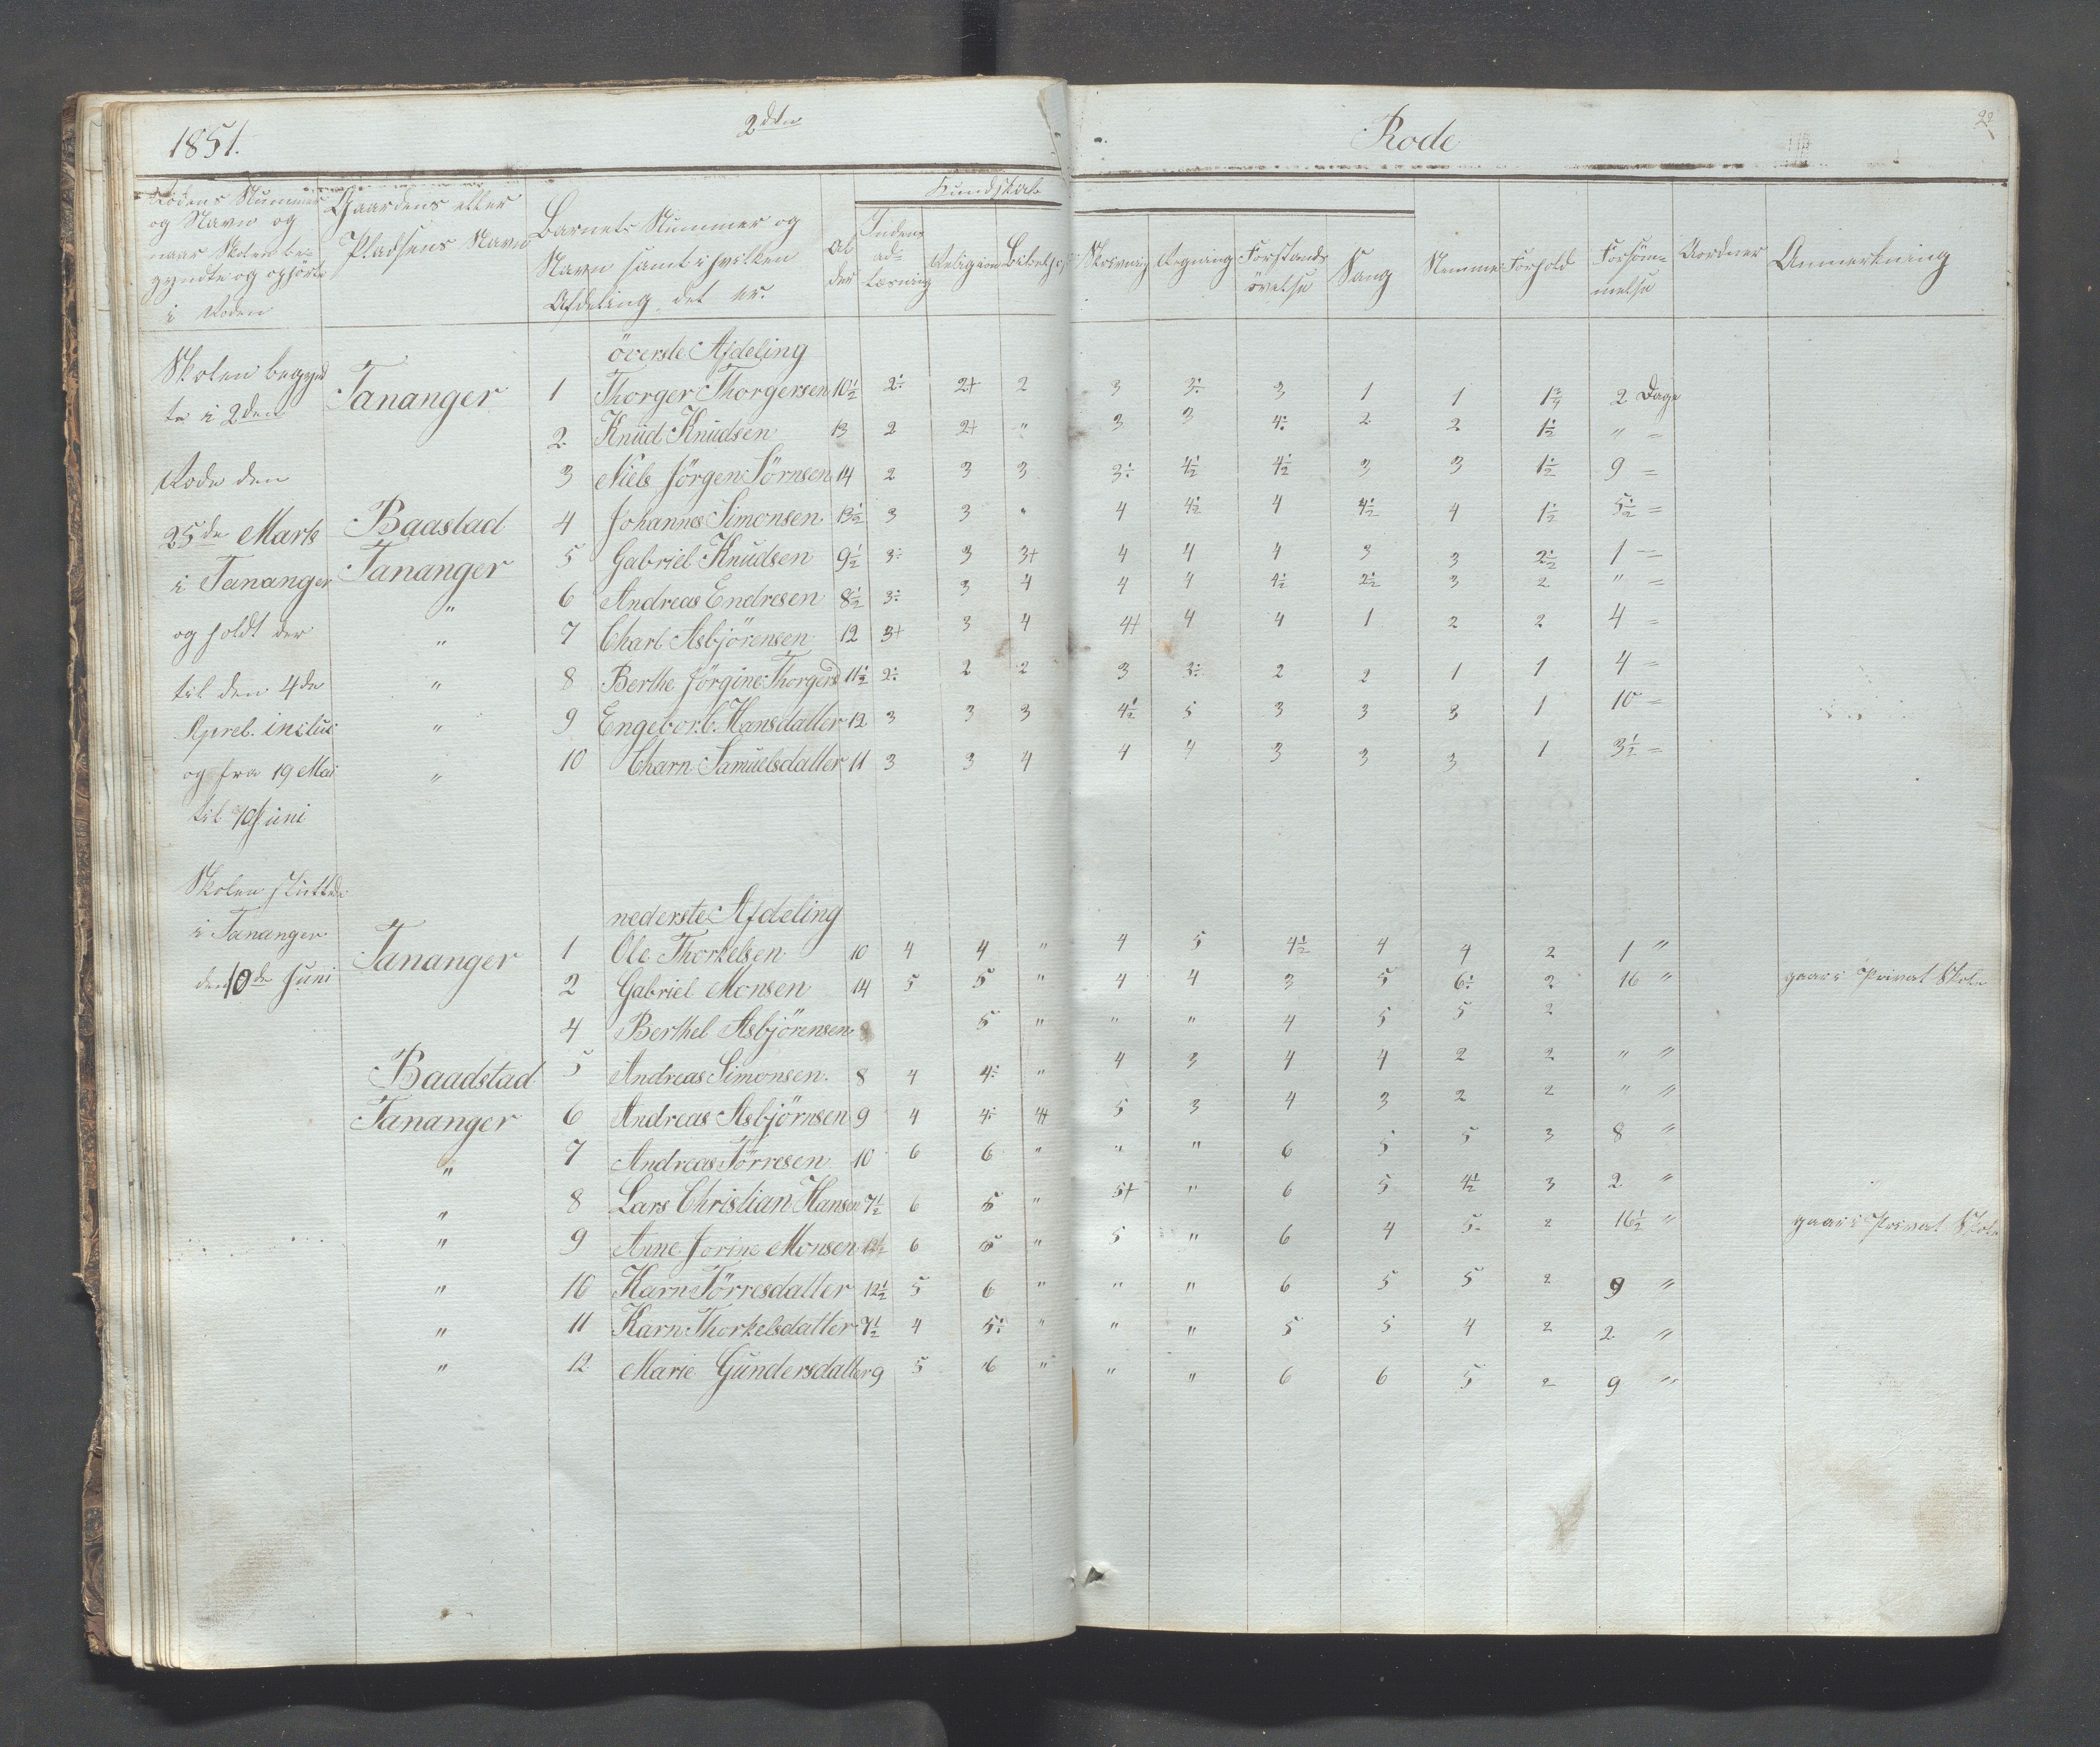 1851.
2den
Rode
22
Rodens Nummer
og Navn og
naar Skolen be-
gyndte og ophörte
i Roden
Gaardens eller
Pladsens Navn
Barnets Nummer og
Navn samt i hvilken
Afdeling det er.
Al
der
Kundskab
Inden-
ad-
læsning
Religion
Bibelh
Skrivning
Regning
Forstands
övelse
Sang
Nemme
Forhold
Forsöm-
melse
Uordner
Anmerkning
Skolen begynd
te i 2den
Rode den
25de Marts
i Tananger
og holdt der
til den 4de
Aprel. inclus
og fra 19 Mai
til 10 Juni
Skolen sluttede
i Tananger
den 10de Juni
överste Afdeling
Tananger 1 Thorger Thorgersen 10½ 2÷ 2+ 2 3 3÷ 3 1 1 1¾ 2 Dage
2 Knud Knudsen 13 2 2+ " 3 3 4÷ 2 2 1½ " =
3 Niels Jörgen Sörnsen 14 2 3 3 3÷ 4½ 4½ 3 3 1½ 9 =
Baastad 4 Johannes Simonsen 13½ 3 3 " 4 4½ 4 4½ 4 1½ 5½ =
Tananger 5 Gabriel Knudsen 9½ 3÷ 3 3+ 4 4 4 3 3 2½ 1 =
" 6 Andreas Endresen 8½ 3÷ 3 4 4 4 4½ 2½ 3 2 " =
" 7 Charl Asbjörensen 12 3+ 3 4 4+ 4 4 1 2 2 4 =
" 8 Berthe Jörgine Thorgersd 11½ 2÷ 2 2 3 3÷ 2 2 1 1 4 =
" 9 Engebor.b. Hansdatter 12 3 3 3 4½ 5 3 3 3 1 10 =
" 10 Charn Samuelsdatter 11 3 3 4 4 4 3 3 3 1 3½ =
nederste Afdeling
Tananger 1 Ole Thorkelsen 10 4 4 " 4 5 4½ 4 4 2 1 "
2 Gabriel Monsen 14 5 5 " 4 4 3 5 6÷ 2 16 " gaar i Privat Skole
4 Berthel Asbjörensen 8 5 " " " 4 5 5 2
Baadstad 5 Andreas Simonsen. 8 4 4÷ " 4 3 4 4 2 2 " "
Tananger 6 Andreas Asbjörnsen 9 4 4÷ 4+ 5 3 4 3 2 2 " "
" 7 Andreas Törresen 10 6 6 " " " 6 5 5 3 8 "
" 8 Lars Christian Hansen 7½ 6 5 " 5+ " 6 5 4½ 3 2 "
" 9 Anne Jorine Monsen 12½ 6 5 " 5 " 6 4 5÷ 2 16½ " gaar i Privat Skole
" 10 Karn Törresdatter 12½ 5 6 " " " 6 5 5 2 9 "
" 11 Karn Thorkelsdatter 7½ 4 5÷ " " " 5 5 4 2 2 "
" 12 Marie Gundersdatter 9 5 6 " " " 6 6 5 2 9 "